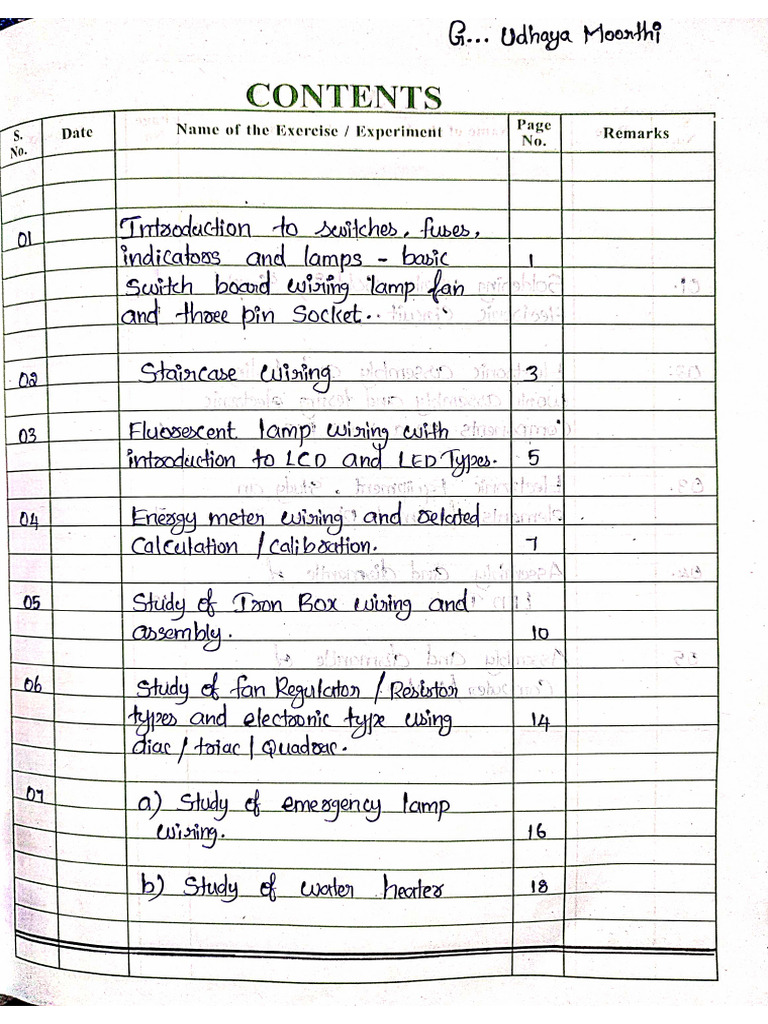 G... Udhaya Moorthi
CONTENTS
S. No. Date Name of the Exercise / Experiment Page No. Remarks
01 Introduction to switches, fuses,
indicators and lamps - basic 1
Switch board wiring lamp fan
and three pin Socket..
02 Staircase wiring 3
03 Fluorescent lamp wiring with
introduction to LCD and LED Types. 5
04 Energy meter wiring and related
Calculation / Calibration. 7
05 Study of Iron Box wiring and
assembly. 10
06 Study of fan Regulator / Resistor
types and electronic type using 14
diac / triac / Quadrac.
07 a) Study of emergency lamp
wiring. 16
b) Study of water heater 18